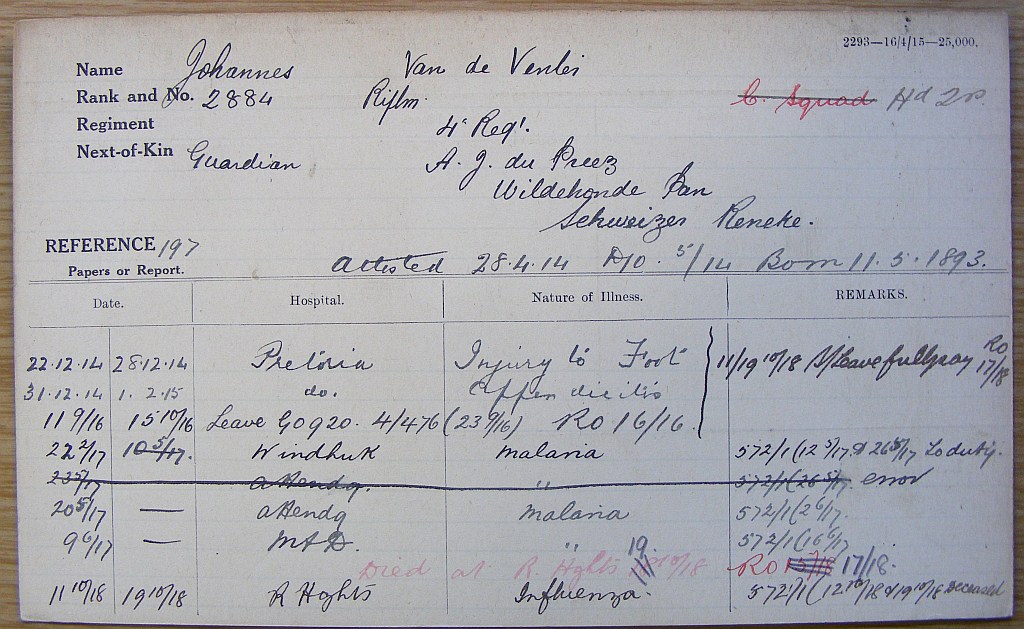 2293—16/4/15—25,000.
Name Johannes Van de Venter
Rank and No. 2884 Riflm. C. Squad Hd 2rs.
Regiment 4th Regt.
Next-of-Kin Guardian A. J. du Preez
Wildehonde Pan
Schweizer Reneke.
REFERENCE 197
Papers or Report. Attested 28.4.14 D/O. 5/14 Born 11.5.1893.
Date. Hospital. Nature of Illness. REMARKS.
22.12.14 28.12.14 Pretoria Injury to Foot 11/19 10/18 S/Leave full pay RO 17/18
31.12.14 1.2.15 do. Appendicitis
11 9/16 15 10/16 Leave GO920. 4/476 (23 9/16) RO 16/16.
22 2/17 10 5/17. Windhuk Malaria 572/1 (12 3/17. & 26 5/17 To duty.
23 5/17 attendg. " 572/1 (26 5/17. error
20 5/17 — attendg Malaria 572/1 (2 6/17.
9 6/17 — M & D. " 572/1 (16 6/17
Died at R. Hghts 19 10/18 RO 17/18.
11 10/18 19 10/18 R Hghts Influenza. 572/1 (12 10/18 & 19 10/18 Deceased